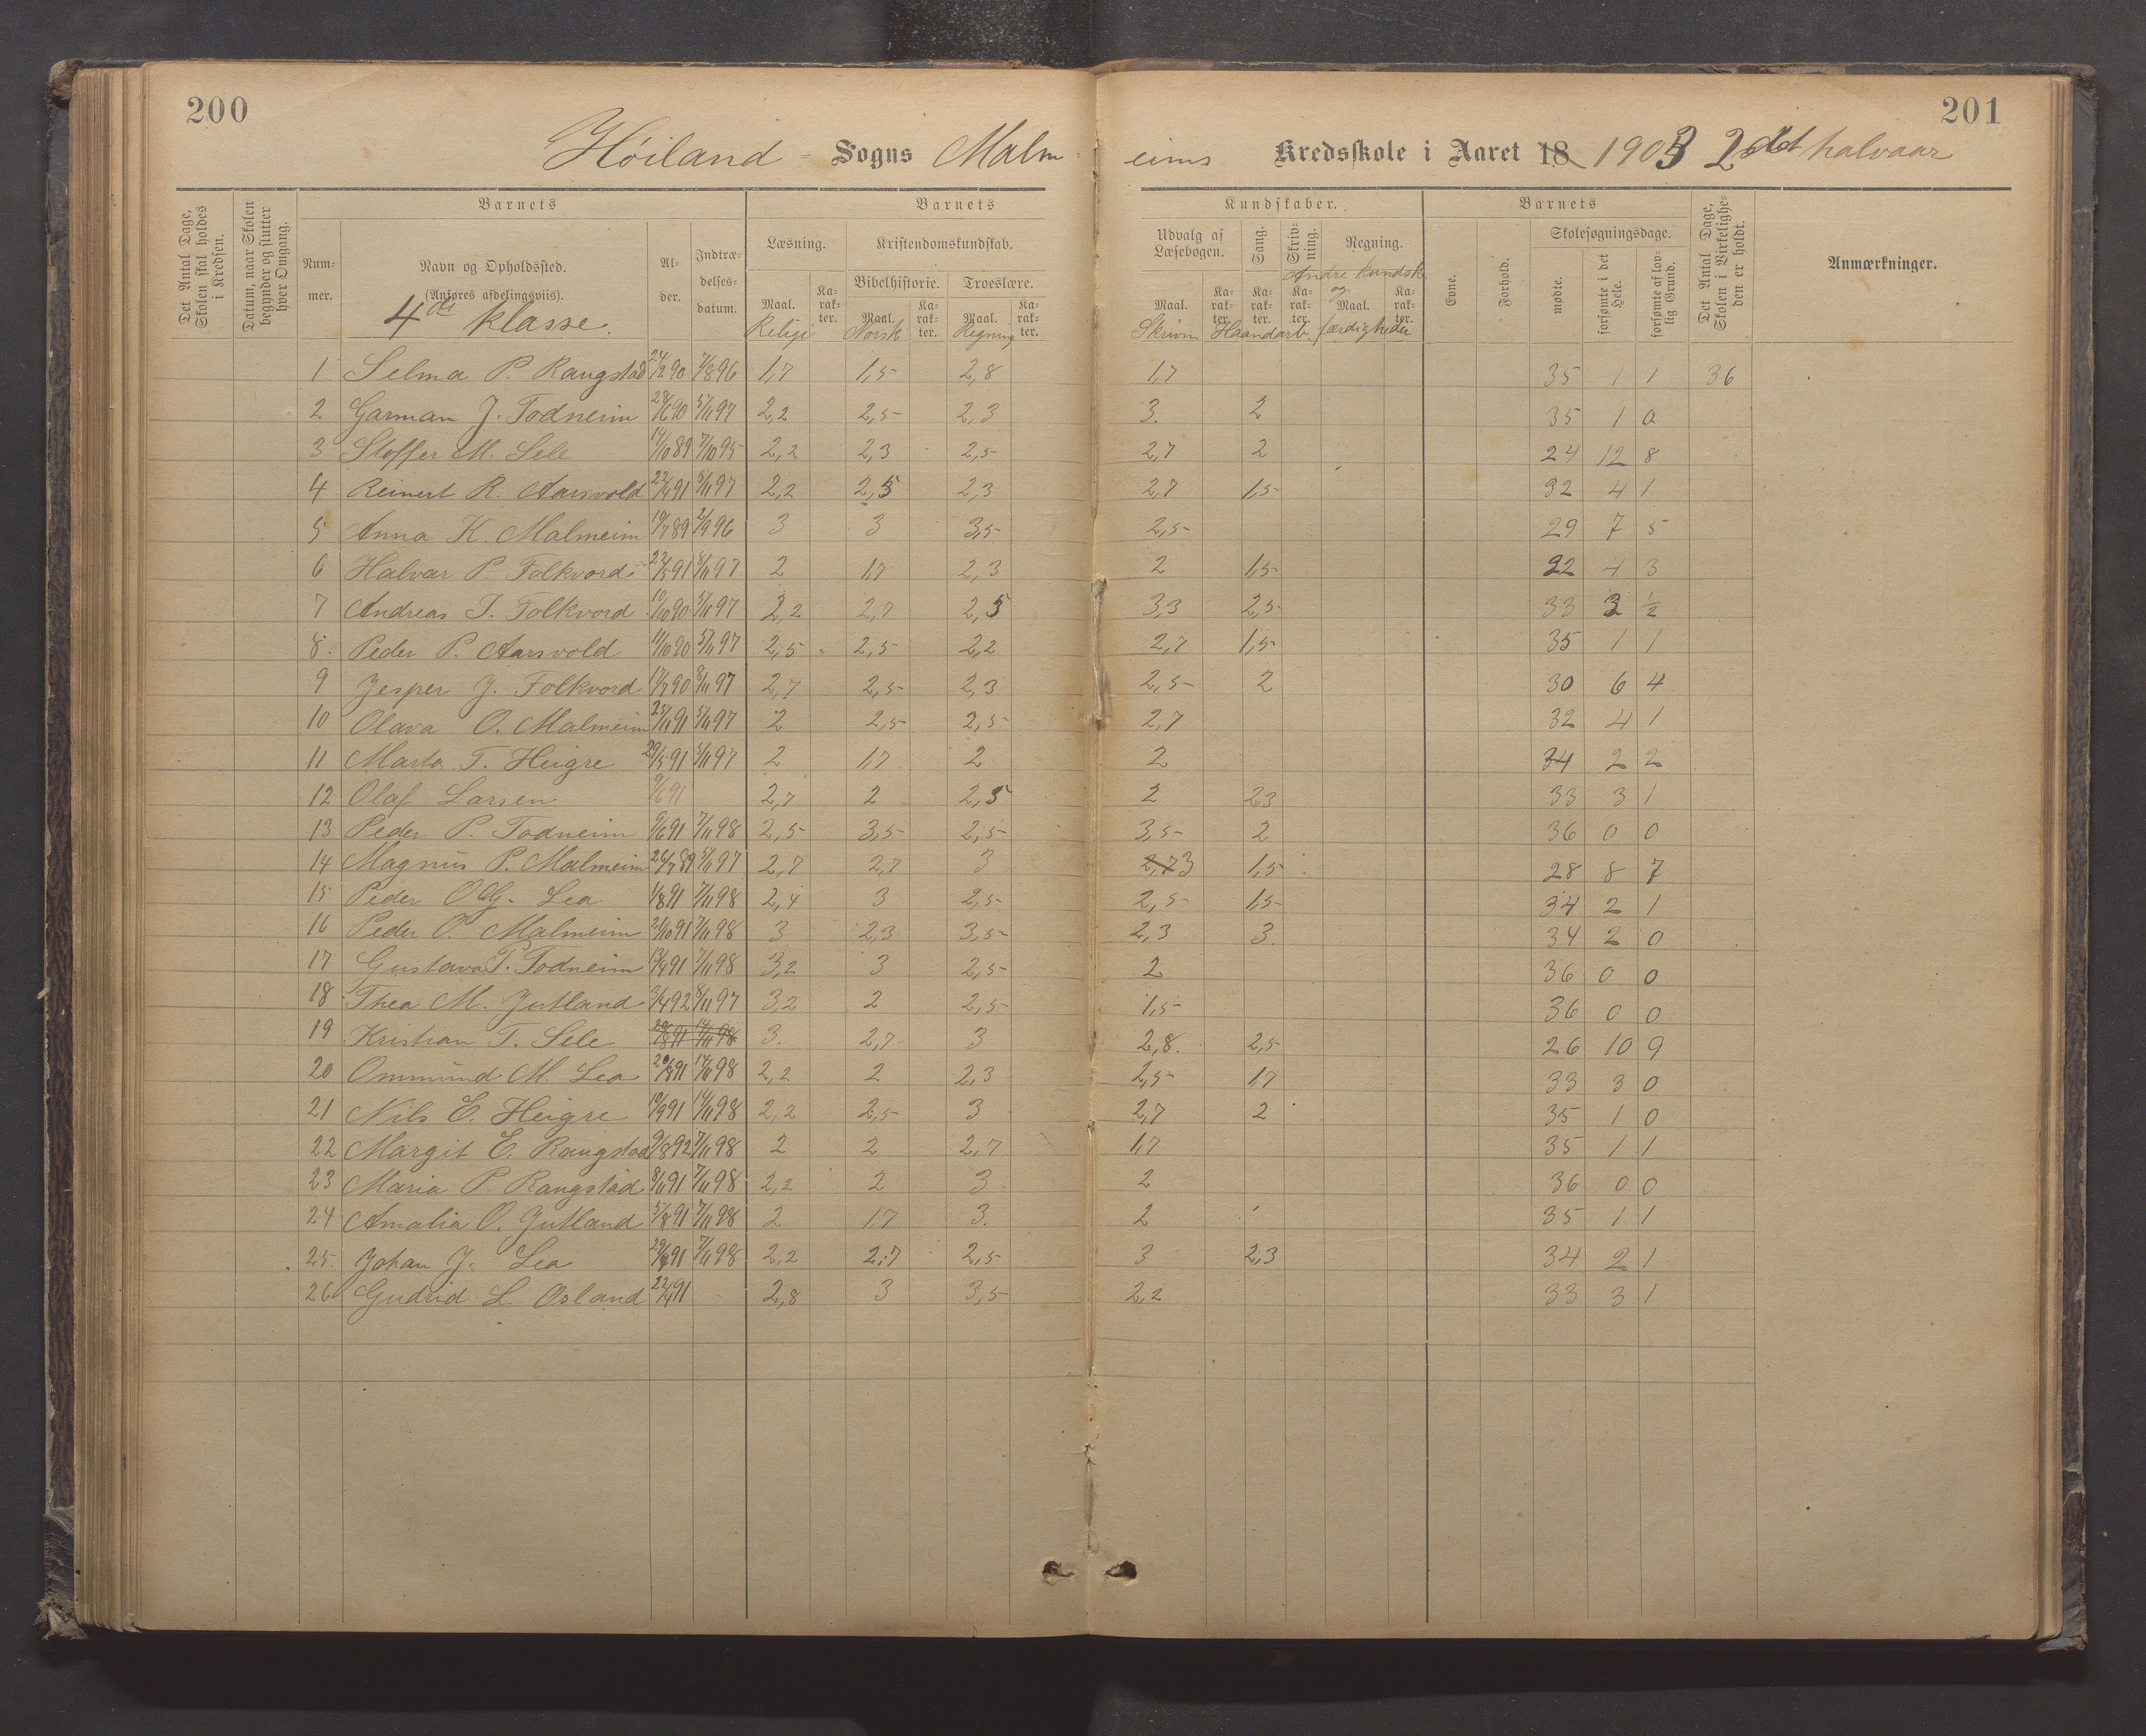 200
201
Höiland Sogns Malm-eims Kredsskole i Aaret 18 1903 2det halvaar
Det Antal Dage, Skolen skal holdes i Kredsen.
Datum, naar Skolen begynder og slutter hver Omgang.
Barnets
Nummer.
Navn og Opholdssted.
(Anføres afdelingsviis).
4de klasse.
Alder.
Indtrædelsesdatum.
Barnets Kundskaber.
Læsning.
Maal. Karakter.
Religi
Kristendomskundskab.
Bibelhistorie. Troeslære.
Maal. Karakter. Maal. Karakter.
Norsk Regning
Udvalg af Læsebogen. Sang. Skrivning. Regning.
Andre kundsk. og færdigheder
Maal. Karakter. Karakter. Karakter. Maal. Karakter.
Skrivn. Haandarb.
Barnets
Evne. Forhold.
Skolesøgningsdage.
mødte. forsømte i det Hele. forsømte af lovlig Grund.
Det Antal Dage, Skolen i Virkeligheden er holdt.
Anmærkninger.
1 Selma P. Raugstad 24/2 90 7/8 96 1,7 1,5 2,8 1,7 35 1 1 36
2 Garman J. Todneim 28/6 90 5/11 97 2,2 2,5 2,3 3. 2 35 1 0
3 Stoffer M. Sele 14/10 89 7/10 95 2,2 2,3 2,5 2,7 2 24 12 8
4 Reinert R. Aarsvold 22/4 91 5/11 97 2,2 2,5 2,3 2,7 1,5 32 4 1
5 Anna K. Malmeim 19/7 89 2/9 96 3 3 3,5 2,5 29 7 5
6 Halvar P. Folkvord 22/5 91 8/11 97 2 1,7 2,3 2 1,5 22 4 3
7 Andreas T. Folkvord 10/10 90 5/11 97 2,2 2,7 2,5 3,3 2,5 33 3 1/2
8. Peder P. Aarsvold 11/10 90 5/11 97 2,5 2,5 2,2 2,7 1,5 35 1 1
9 Jesper J. Folkvord 17/7 90 8/11 97 2,7 2,5 2,3 2,5 2 30 6 4
10 Olava O. Malmeim 25/11 91 5/11 97 2 2,5 2,5 2,7 32 4 1
11 Marta T. Heigre 29/5 91 5/11 97 2 1,7 2 2 34 2 2
12 Olaf Larsen 9/6 91 2,7 2 2,5 2 2,3 33 3 1
13 Peder P. Todneim 9/6 91 7/11 98 2,5 3,5 2,5 3,5 2 36 0 0
14 Magnus P. Malmeim 26/7 89 5/11 97 2,7 2,7 3 2,7 3 1,5 28 8 7
15 Peder O. G. Lea 1/8 91 7/11 98 2,4 3 2,5 2,5 1,5 34 2 1
16 Peder O. Malmeim 21/10 91 7/11 98 3 2,3 3,5 2,3 3. 34 2 0
17 Gustava P. Todneim 13/4 91 7/11 98 3,2 3 2,5 2 36 0 0
18 Thea M. Jutland 3/4 92 8/11 97 3,2 2 2,5 1,5 36 0 0
19 Kristian T. Sele 20/8 91 14/11 98 3. 2,7 3 2,8. 2,5 26 10 9
20 Ommund M. Lea 20/8 91 14/11 98 2,2 2 2,3 2,5 1,7 33 3 0
21 Nils E. Heigre 10/9 91 14/11 98 2,2 2,5 3 2,7 2 35 1 0
22 Margit E. Raugstad 9/8 92 7/11 98 2 2 2,7 1,7 35 1 1
23 Maria P. Raugstad 8/11 91 7/11 98 2,2 2 3 2 36 0 0
24 Amalia O. Jutland 5/8 91 7/11 98 2 1,7 3. 2 35 1 1
25. Johan J. Lea 29/9 91 7/11 98 2,2 2,7 2,5 3 2,3 34 2 1
26 Gudrid L. Osland 22/4 91 2,8 3 3,5 2,2 33 3 1